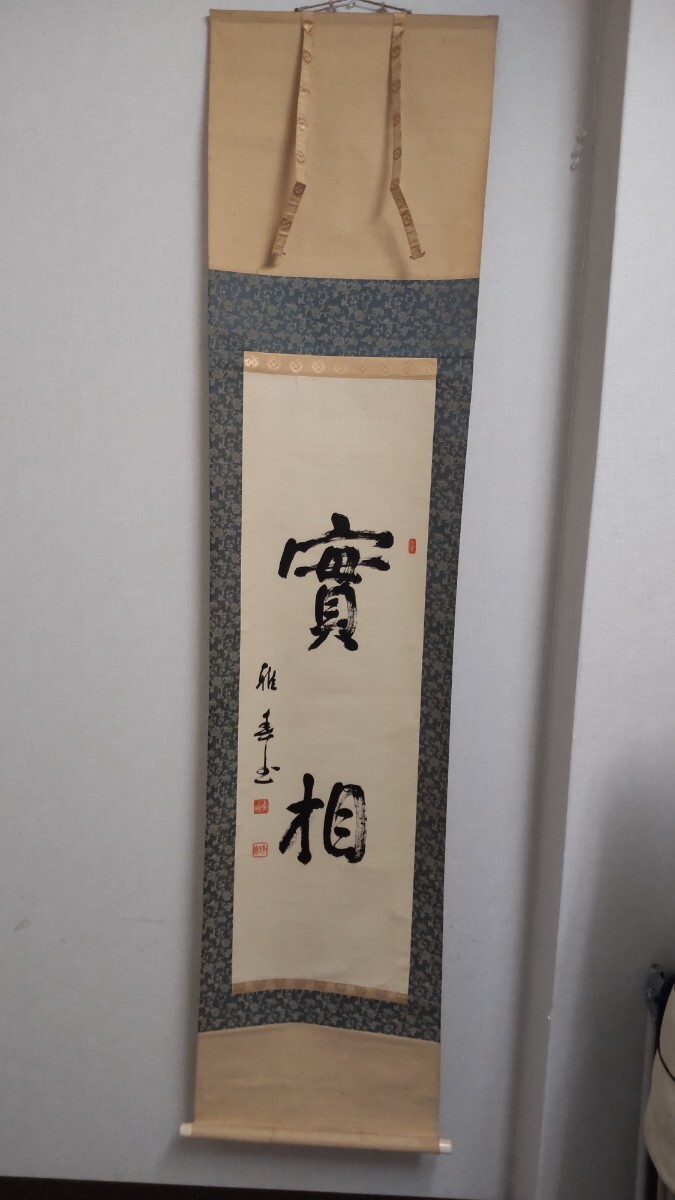 實相
雅春書